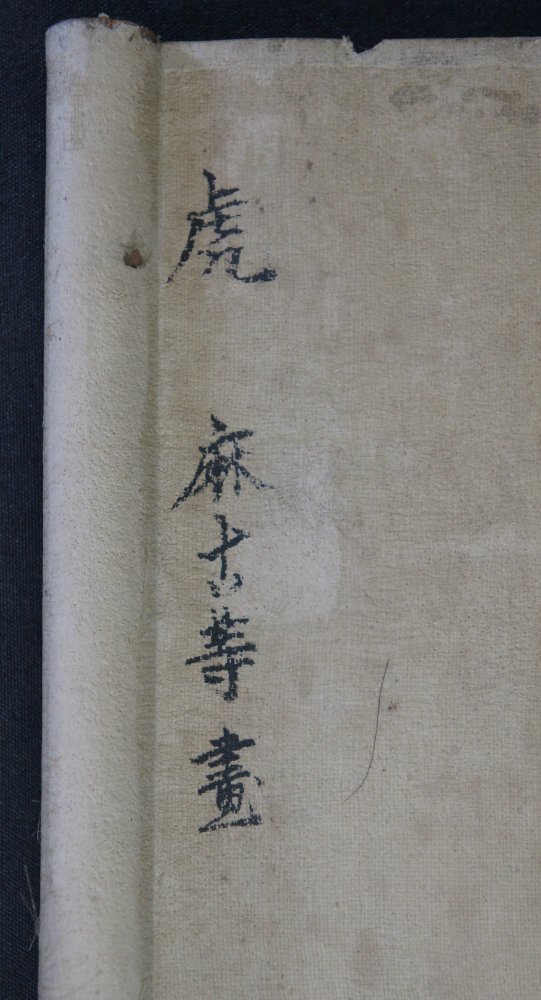 虎 麻古等畫